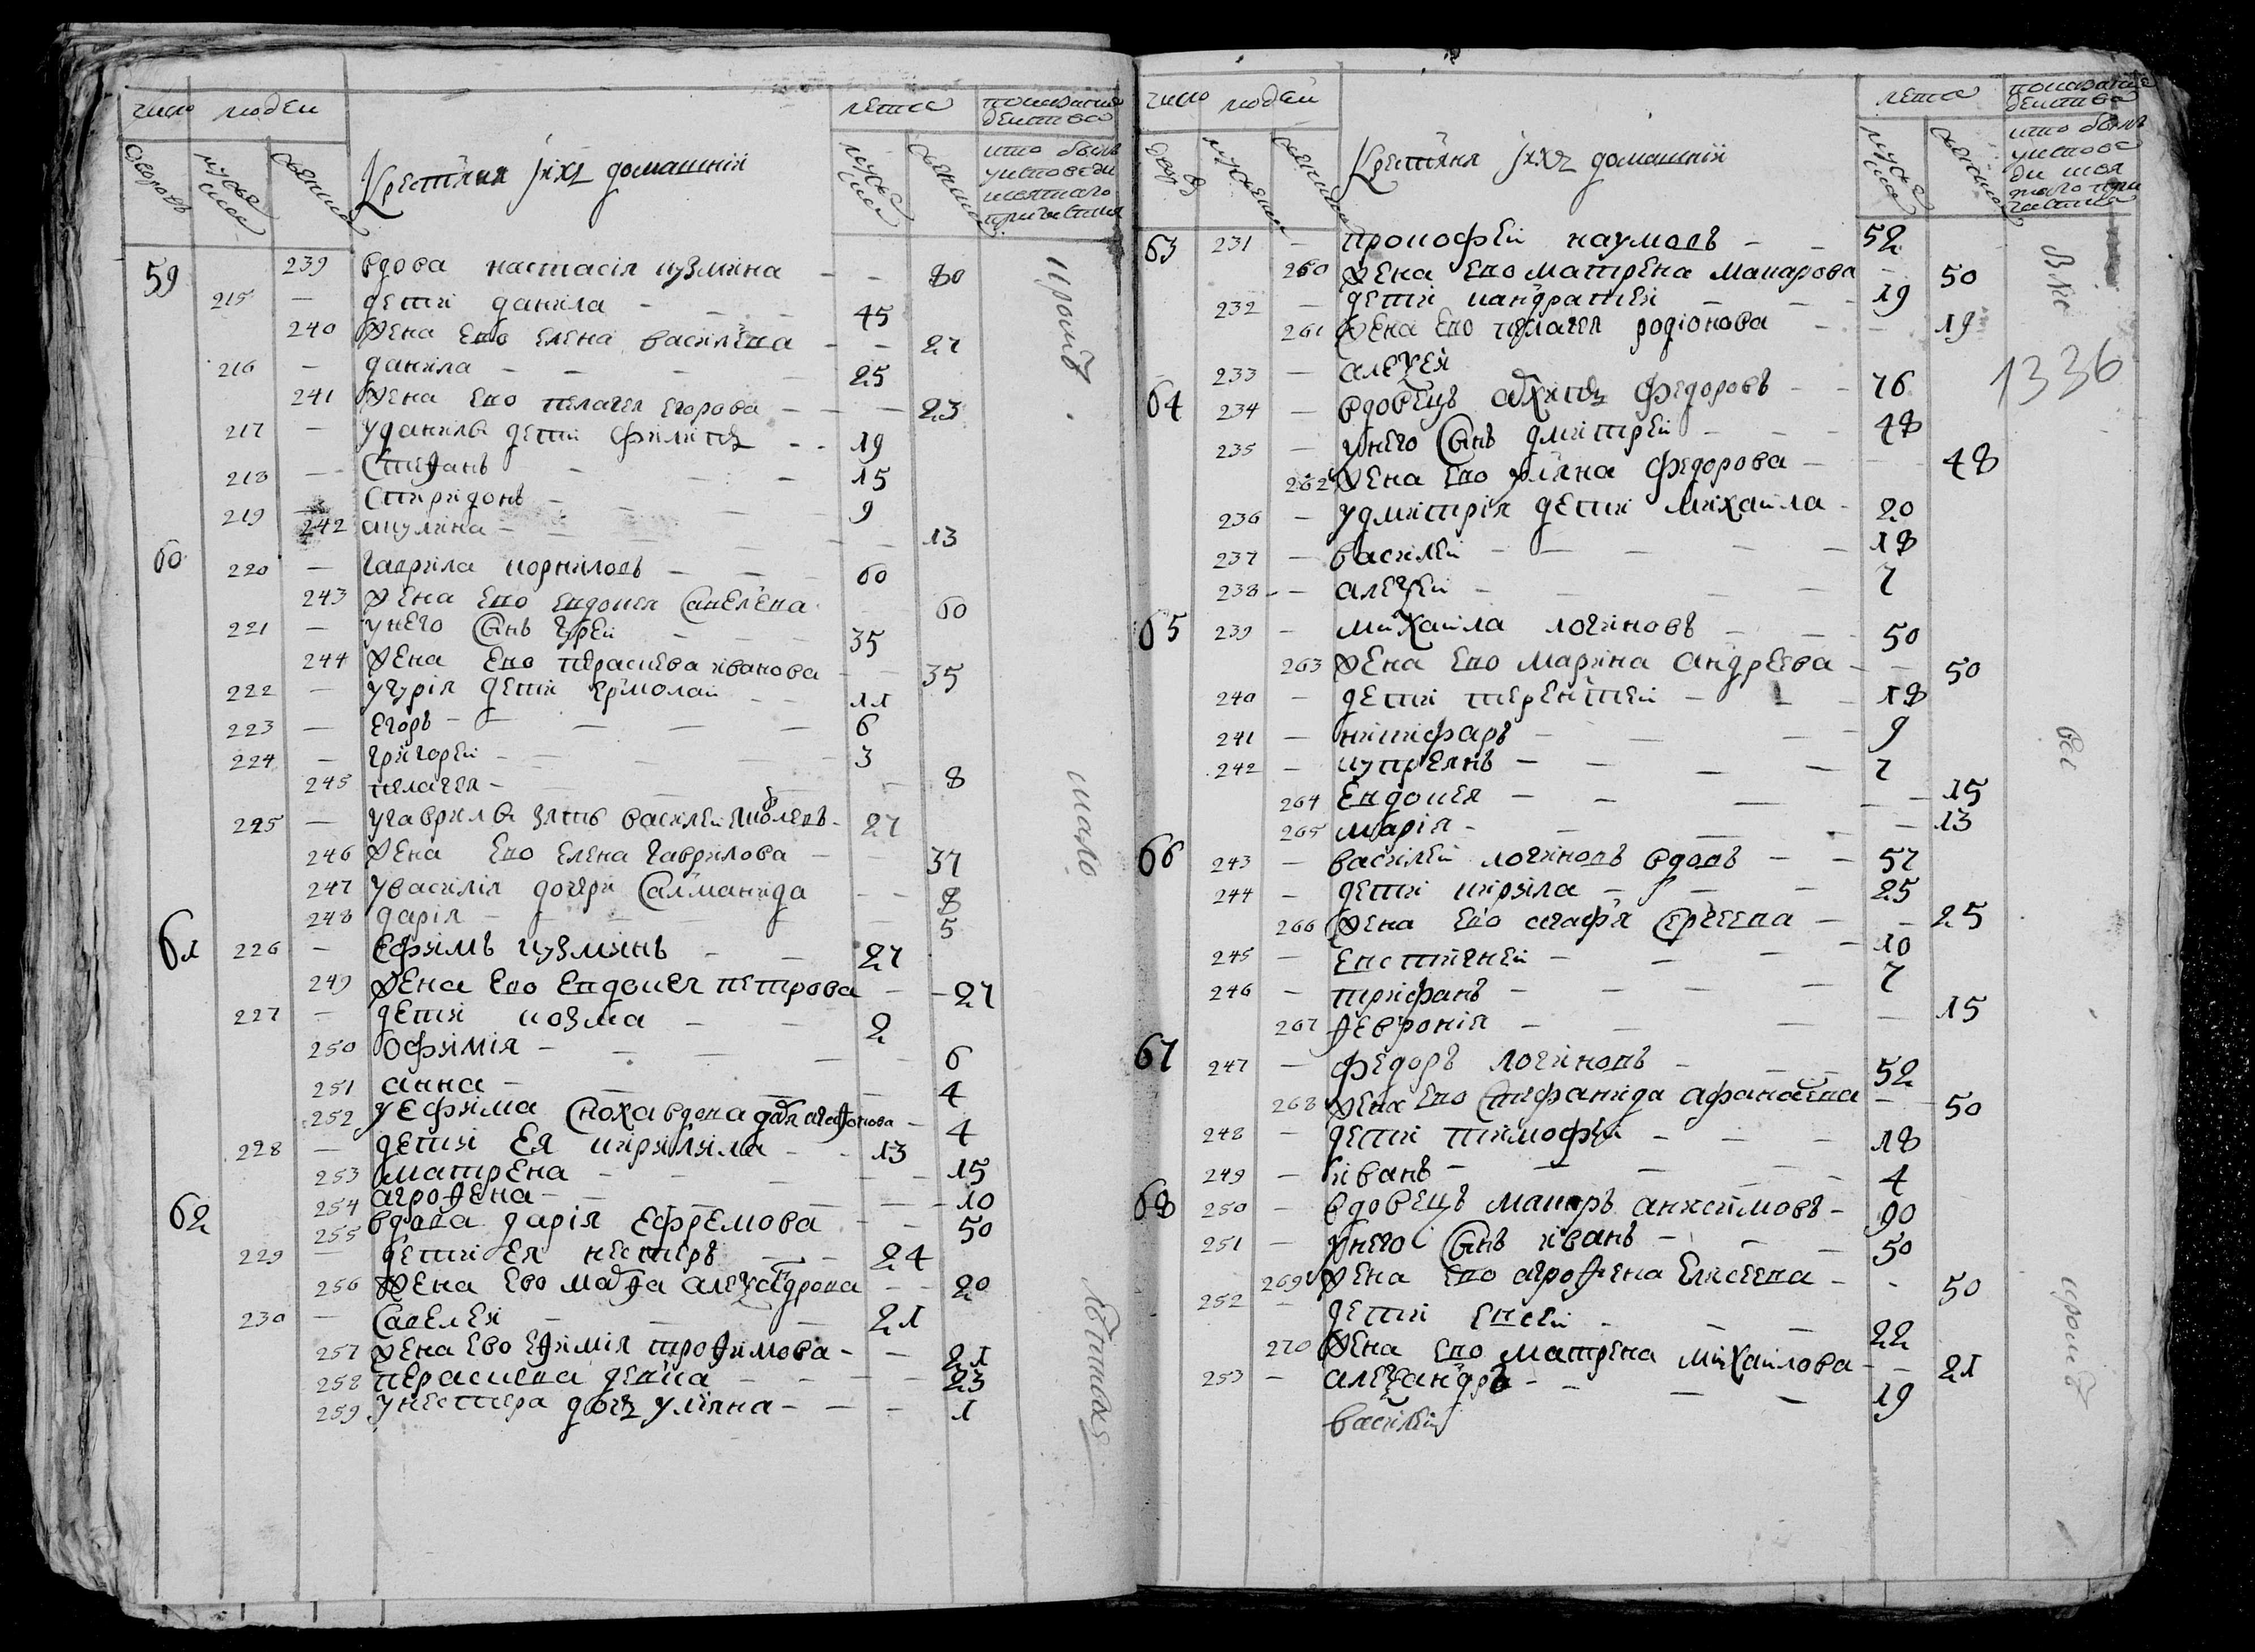 число людей лета показание действа
дворовъ мужеска женска Крестьяня іихъ домашніи мужеска женска кто былъ уисповеди исвятаго причастия
59 239 вдова настасія кузмина - - 80
215 - дети данила - 45
240 жена ево елена василева - - 27
216 - данила - 25
241 жена ево пелагея егорова - - 23
217 - уданилы дети филипъ - 19
218 - Степанъ - 15
219 - Спиридонъ - 9
242 акулина - 13
60 220 - гаврила корниловъ - 60
243 жена ево евдокея Савелева 60
221 - унего Сынъ гурей - 35
244 жена ево параскева иванова - 35
222 - угурія дети ермолай - 11
223 - егоръ - 6
224 - григорей - 3
245 пелагея - 8
225 - угаврилы зять василей яковлевъ - 27
246 жена ево елена гаврилова - 37
247 увасилія дочери Салманида - 8
248 дарія - 5
61 226 - ефимъ кузминъ - 27
249 жена ево евдокея петрова - 27
227 - дети козма - 2
250 офимія - 6
251 анна - 4
252 уефима Сноха вдова дарья агафонова - 4
228 - дети ея кирилила - 13
253 матрена - 15
254 агрофена - 10
62 255 вдова дарія ефремова - 50
229 - дети ея нестеръ - 24
256 жена ево марфа александрова - 20
230 - Савелей - 21
257 жена ево ефимія трофимова - 21
258 параскева девка - 23
259 унестера дочь уляна - 1
кромѣ
малолѣтныхъ
число людей лета показание действа
дворовъ мужеска женска Крестьяня іихъ домашніи мужеска женска кто былъ уисповеди исвятаго причастия
63 231 - прокофей наумовъ - 52
260 жена ево матрена макарова - 50
232 - дети кандратей - 19
261 жена ево пелагея родіонова - 19
233 - алеѯей
64 234 - вдовецъ архипъ федоровъ - 76
235 - унего Сынъ дмитрей - 48
262 жена ево уляна федорова - 48
236 - удмитрія дети михаила - 20
237 - василей - 18
238 - алеѯей - 7
65 239 - михаила логиновъ - 50
263 жена ево марина андреева - 50
240 - дети терентей - 18
241 - никифаръ - 9
242 - купреянъ - 7
264 евдокея - 15
265 марія - 13
66 243 - василей логиновъ вдовъ - 57
244 - дети кирила - 25
266 жена ево агафья Сергеева - 25
245 - евстигней - 10
246 - трифанъ - 7
267 февронія - 15
67 247 - федоръ логиновъ - 52
268 жена ево Стефанида афанасева - 50
248 - дети тимофей - 18
249 - иванъ - 4
68 250 - вдовецъ макаръ анисимовъ - 90
251 - унего Сынъ иванъ - 50
269 жена ево агрофена елисеева - 50
252 - дети евсей - 22
270 жена ево матрена михаилова - 21
253 - алеѯандръ - 19
василей
1336
все
кромѣ